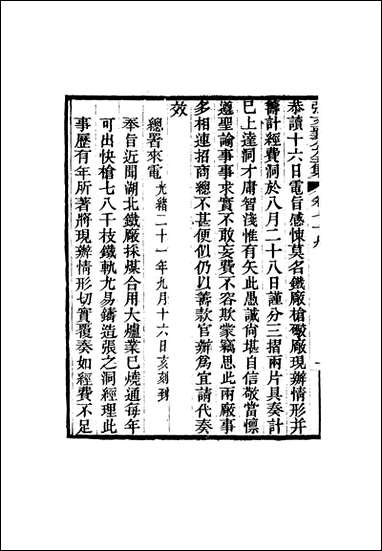 張文襄公全集 卷七十九 一
恭讀十六日電旨感悚莫名鐵廠槍礮廠現辦情形并
籌計經費洞於八月二十八日謹分三摺兩片具奏計
已上達洞才庸智淺惟有矢此愚誠尙堪自信敬當懍
遵聖諭事事求實不敢妄費不容欺蒙竊思此兩廠事
多相連招商總不甚便似仍以籌款官辦爲宜請代奏
效
總署來電光緒二十一年九月十六日亥刻到
奉旨近聞湖北鐵廠採煤合用大爐業已燒通每年
可出快槍七八千枝鐵軌尤易鑄造張之洞經理此
事歷有年所著將現辦情形切實覆奏如經費不足